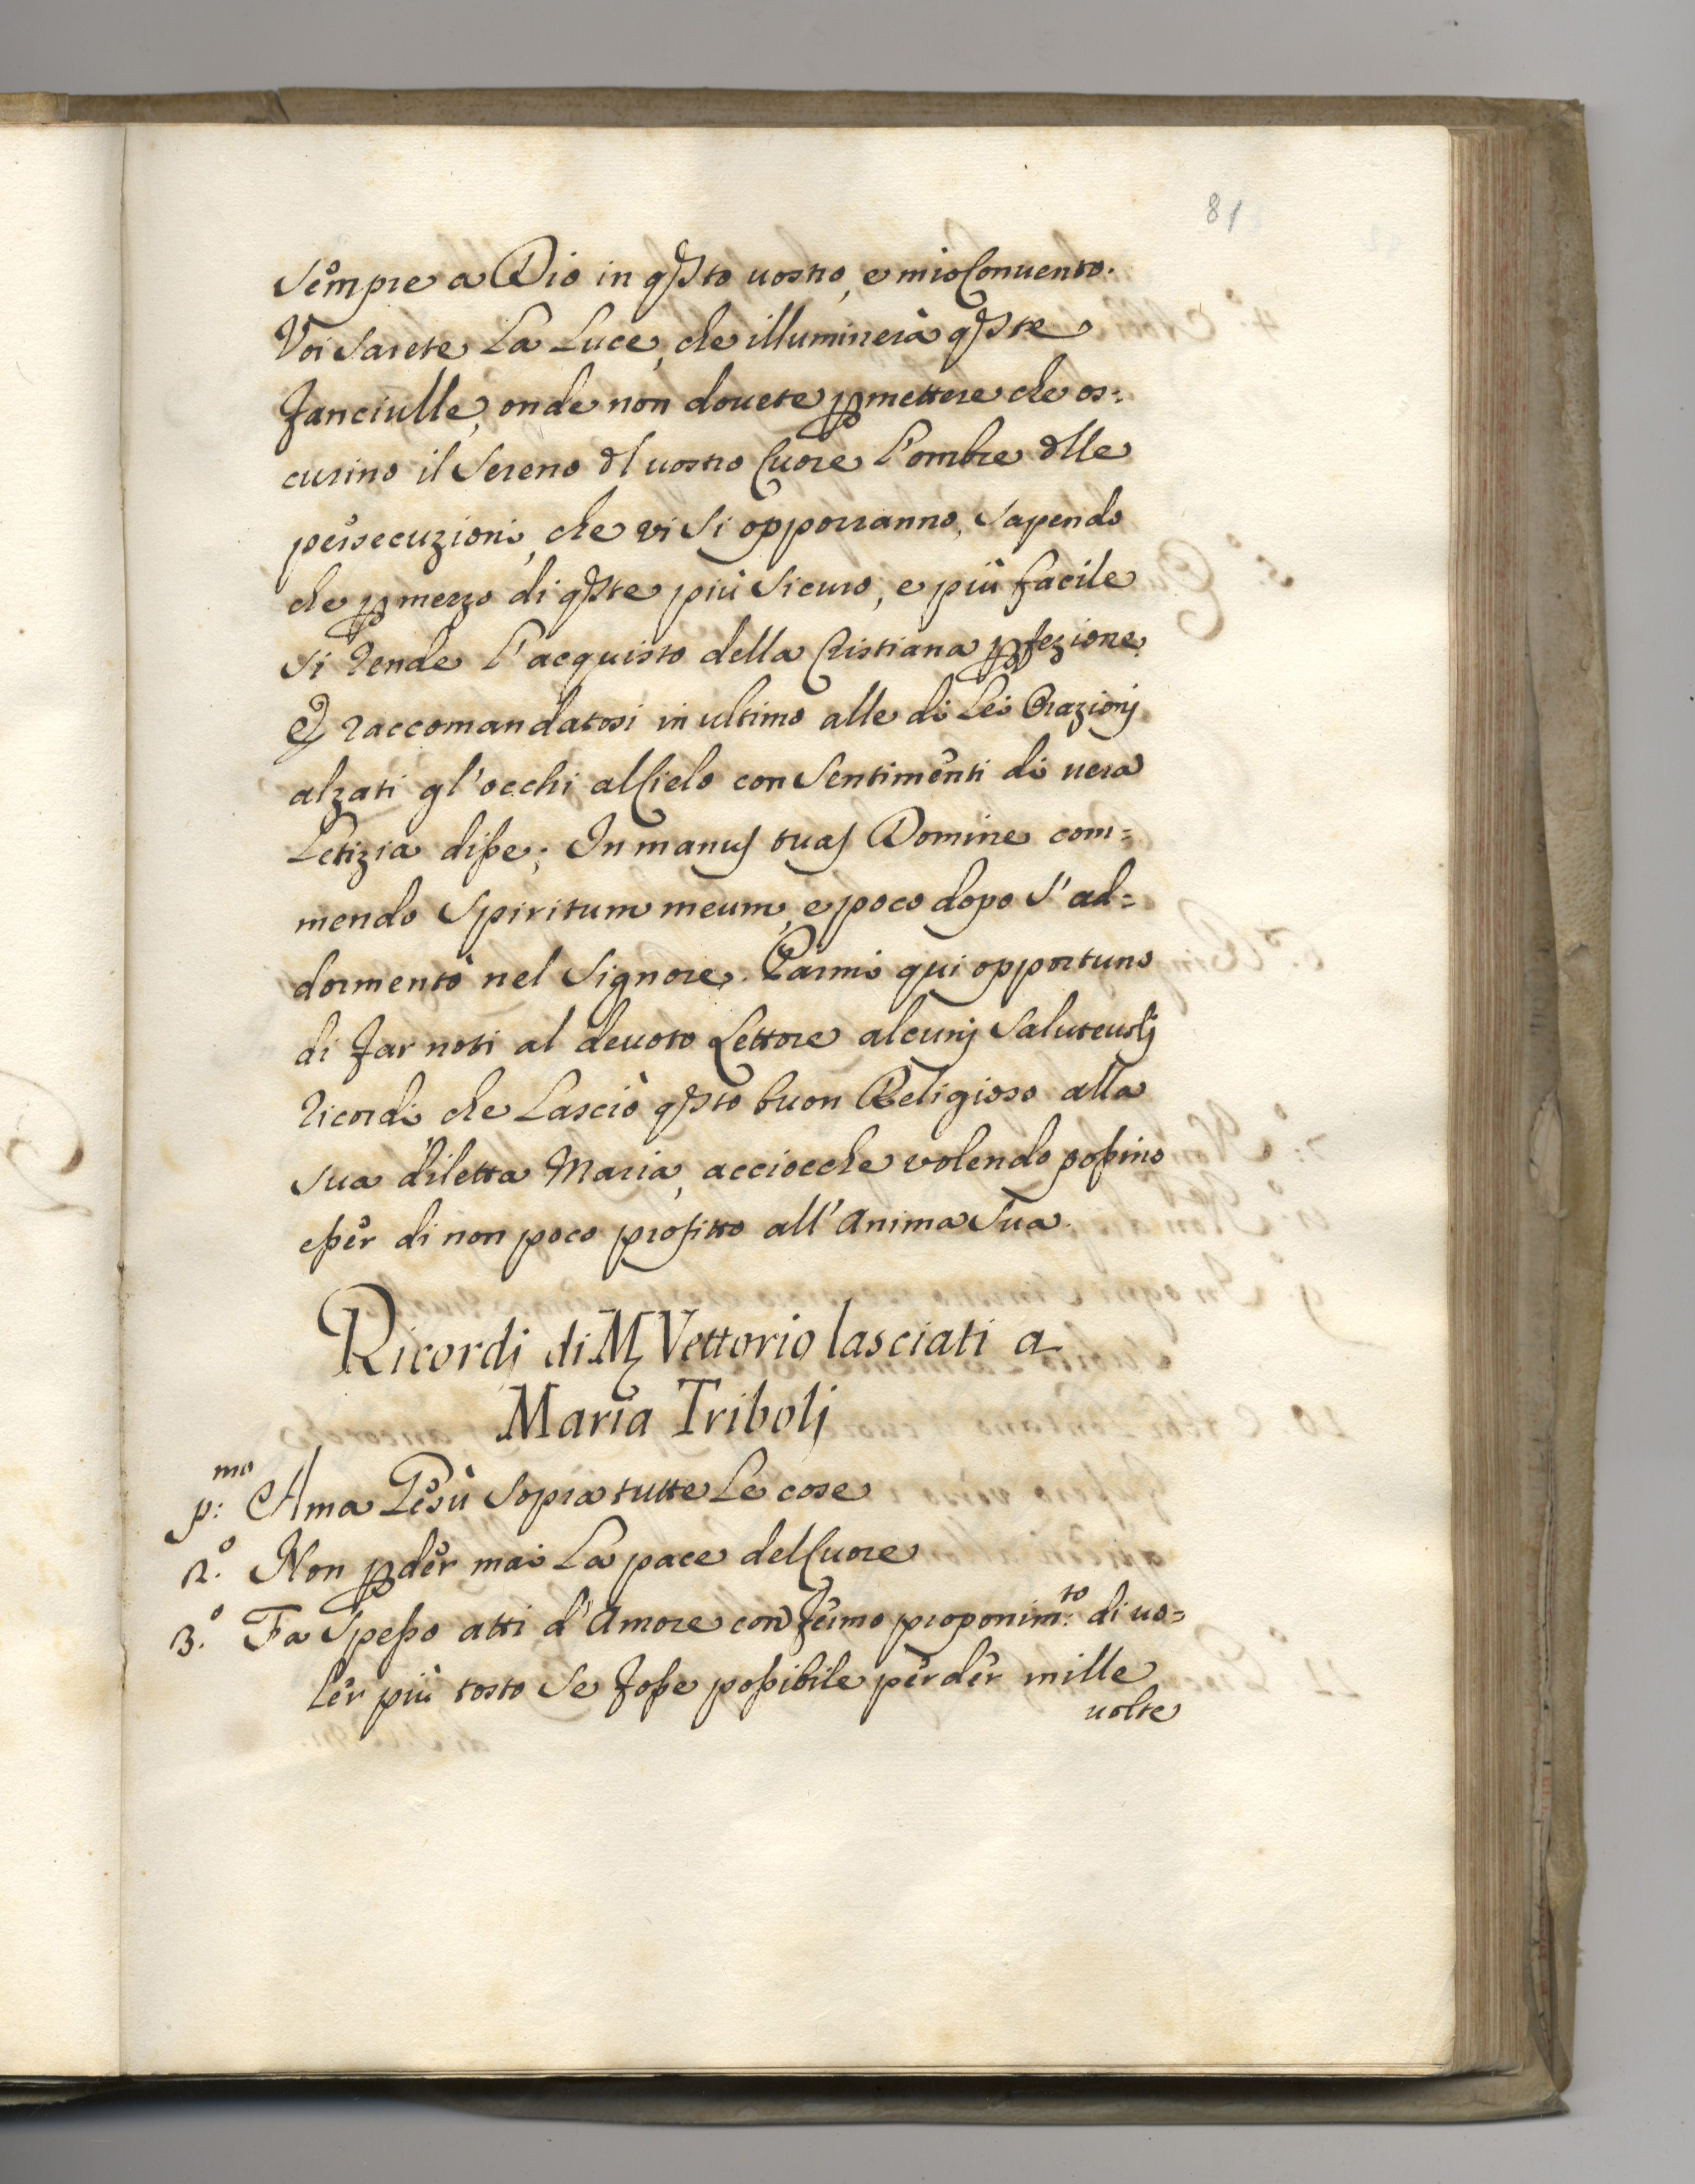 81
Sempre a Dio in qsto uostro, e mio Conuento.
Voi Sarete La Luce, che illuminerà qste
fanciulle, onde non douete pmettere che os=
curino il Sereno dl uostro Cuore l'ombre dlle
persecuzioni, che vi Si opporranno, Sapendo
che p mezzo di qste più Sicuro, e più facile
Si rende l'acquisto della Cristiana pfezione.
E raccomandatosi in ultimo alle di Lei Orazionj
alzati gl'occhi al Cielo con Sentimenti di uera
Letizia disse; In manus tuas Domine com=
mendo Spiritum meum, e poco dopo s'ad=
dormentò nel Signore. Parmi qui opportuno
di far noti al deuoto Lettore alcunj Saluteuolj
ricordi che Lasciò qsto buon Religioso alla
sua diletta Maria, acciocche volendo possino
esser di non poco profitto all'Anima Sua.
Ricordj di M Vettorio lasciati a
Maria Tribolj
p:mo Ama Gesù Sopra tutte Le cose
2.o Non pder mai La pace del Cuore
3.o Fa Spesso atti d'Amore con fermo proponim:to di uo=
ler più tosto Se fosse possibile perder mille
uolte